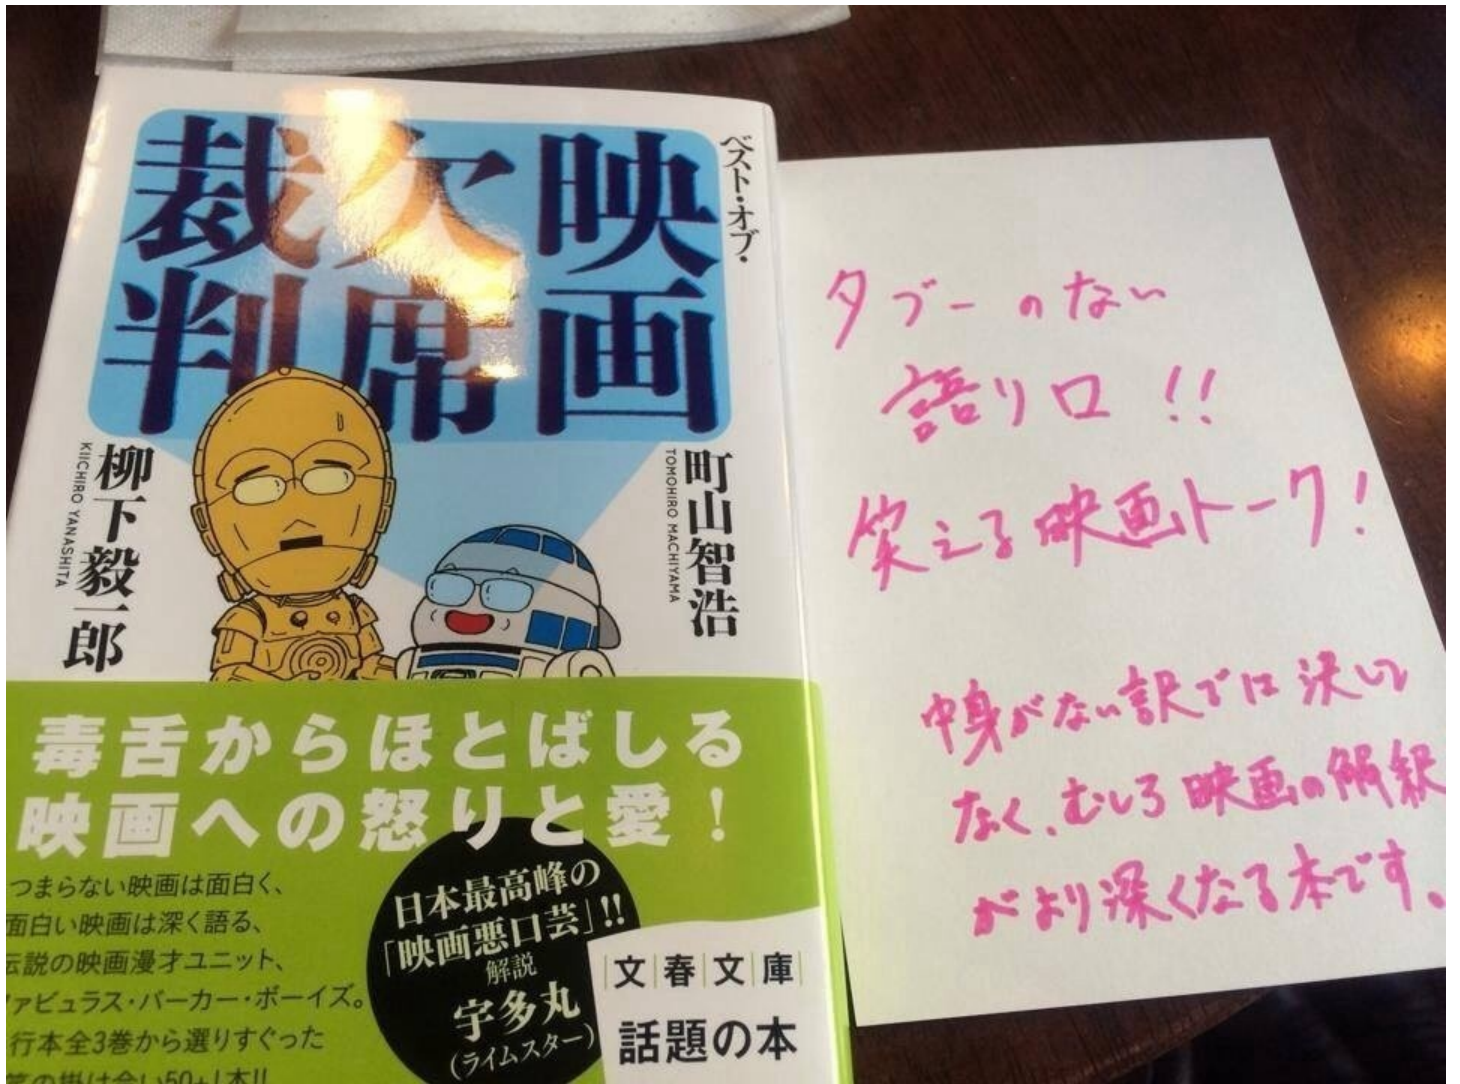 ベスト・オブ・
映画
欠席
裁判
町山智浩
TOMOHIRO MACHIYAMA
柳下毅一郎
KIICHIRO YANASHITA
毒舌からほとばしる
映画への怒りと愛!
つまらない映画は面白く、
面白い映画は深く語る、
伝説の映画漫才ユニット、
ファビュラス・バーカー・ボーイズ。
行本全3巻から選りすぐった
日本最高峰の
「映画悪口芸」!!
解説
宇多丸
(ライムスター)
文春文庫
話題の本
タブーのない
語り口!!
笑える映画トーク!
中身がない訳では決して
なく、むしろ映画の解釈
がより深くなる本です。